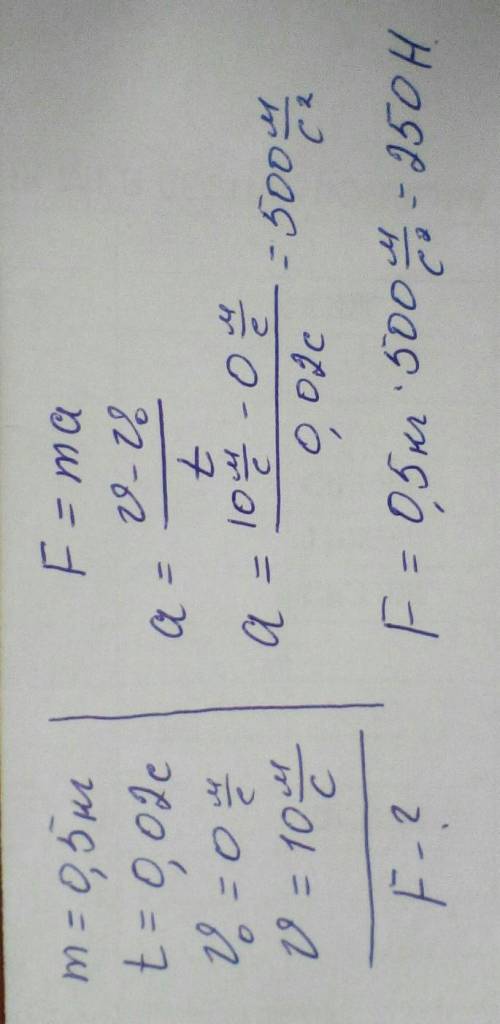 m = 0,5 кг
t = 0,02 с
v₀ = 0 м/с
v = 10 м/с
F - ?
F = ma
a = (v - v₀)/t
a = (10 м/с - 0 м/с)/0,02 с = 500 м/с²
F = 0,5 кг · 500 м/с² = 250 Н.